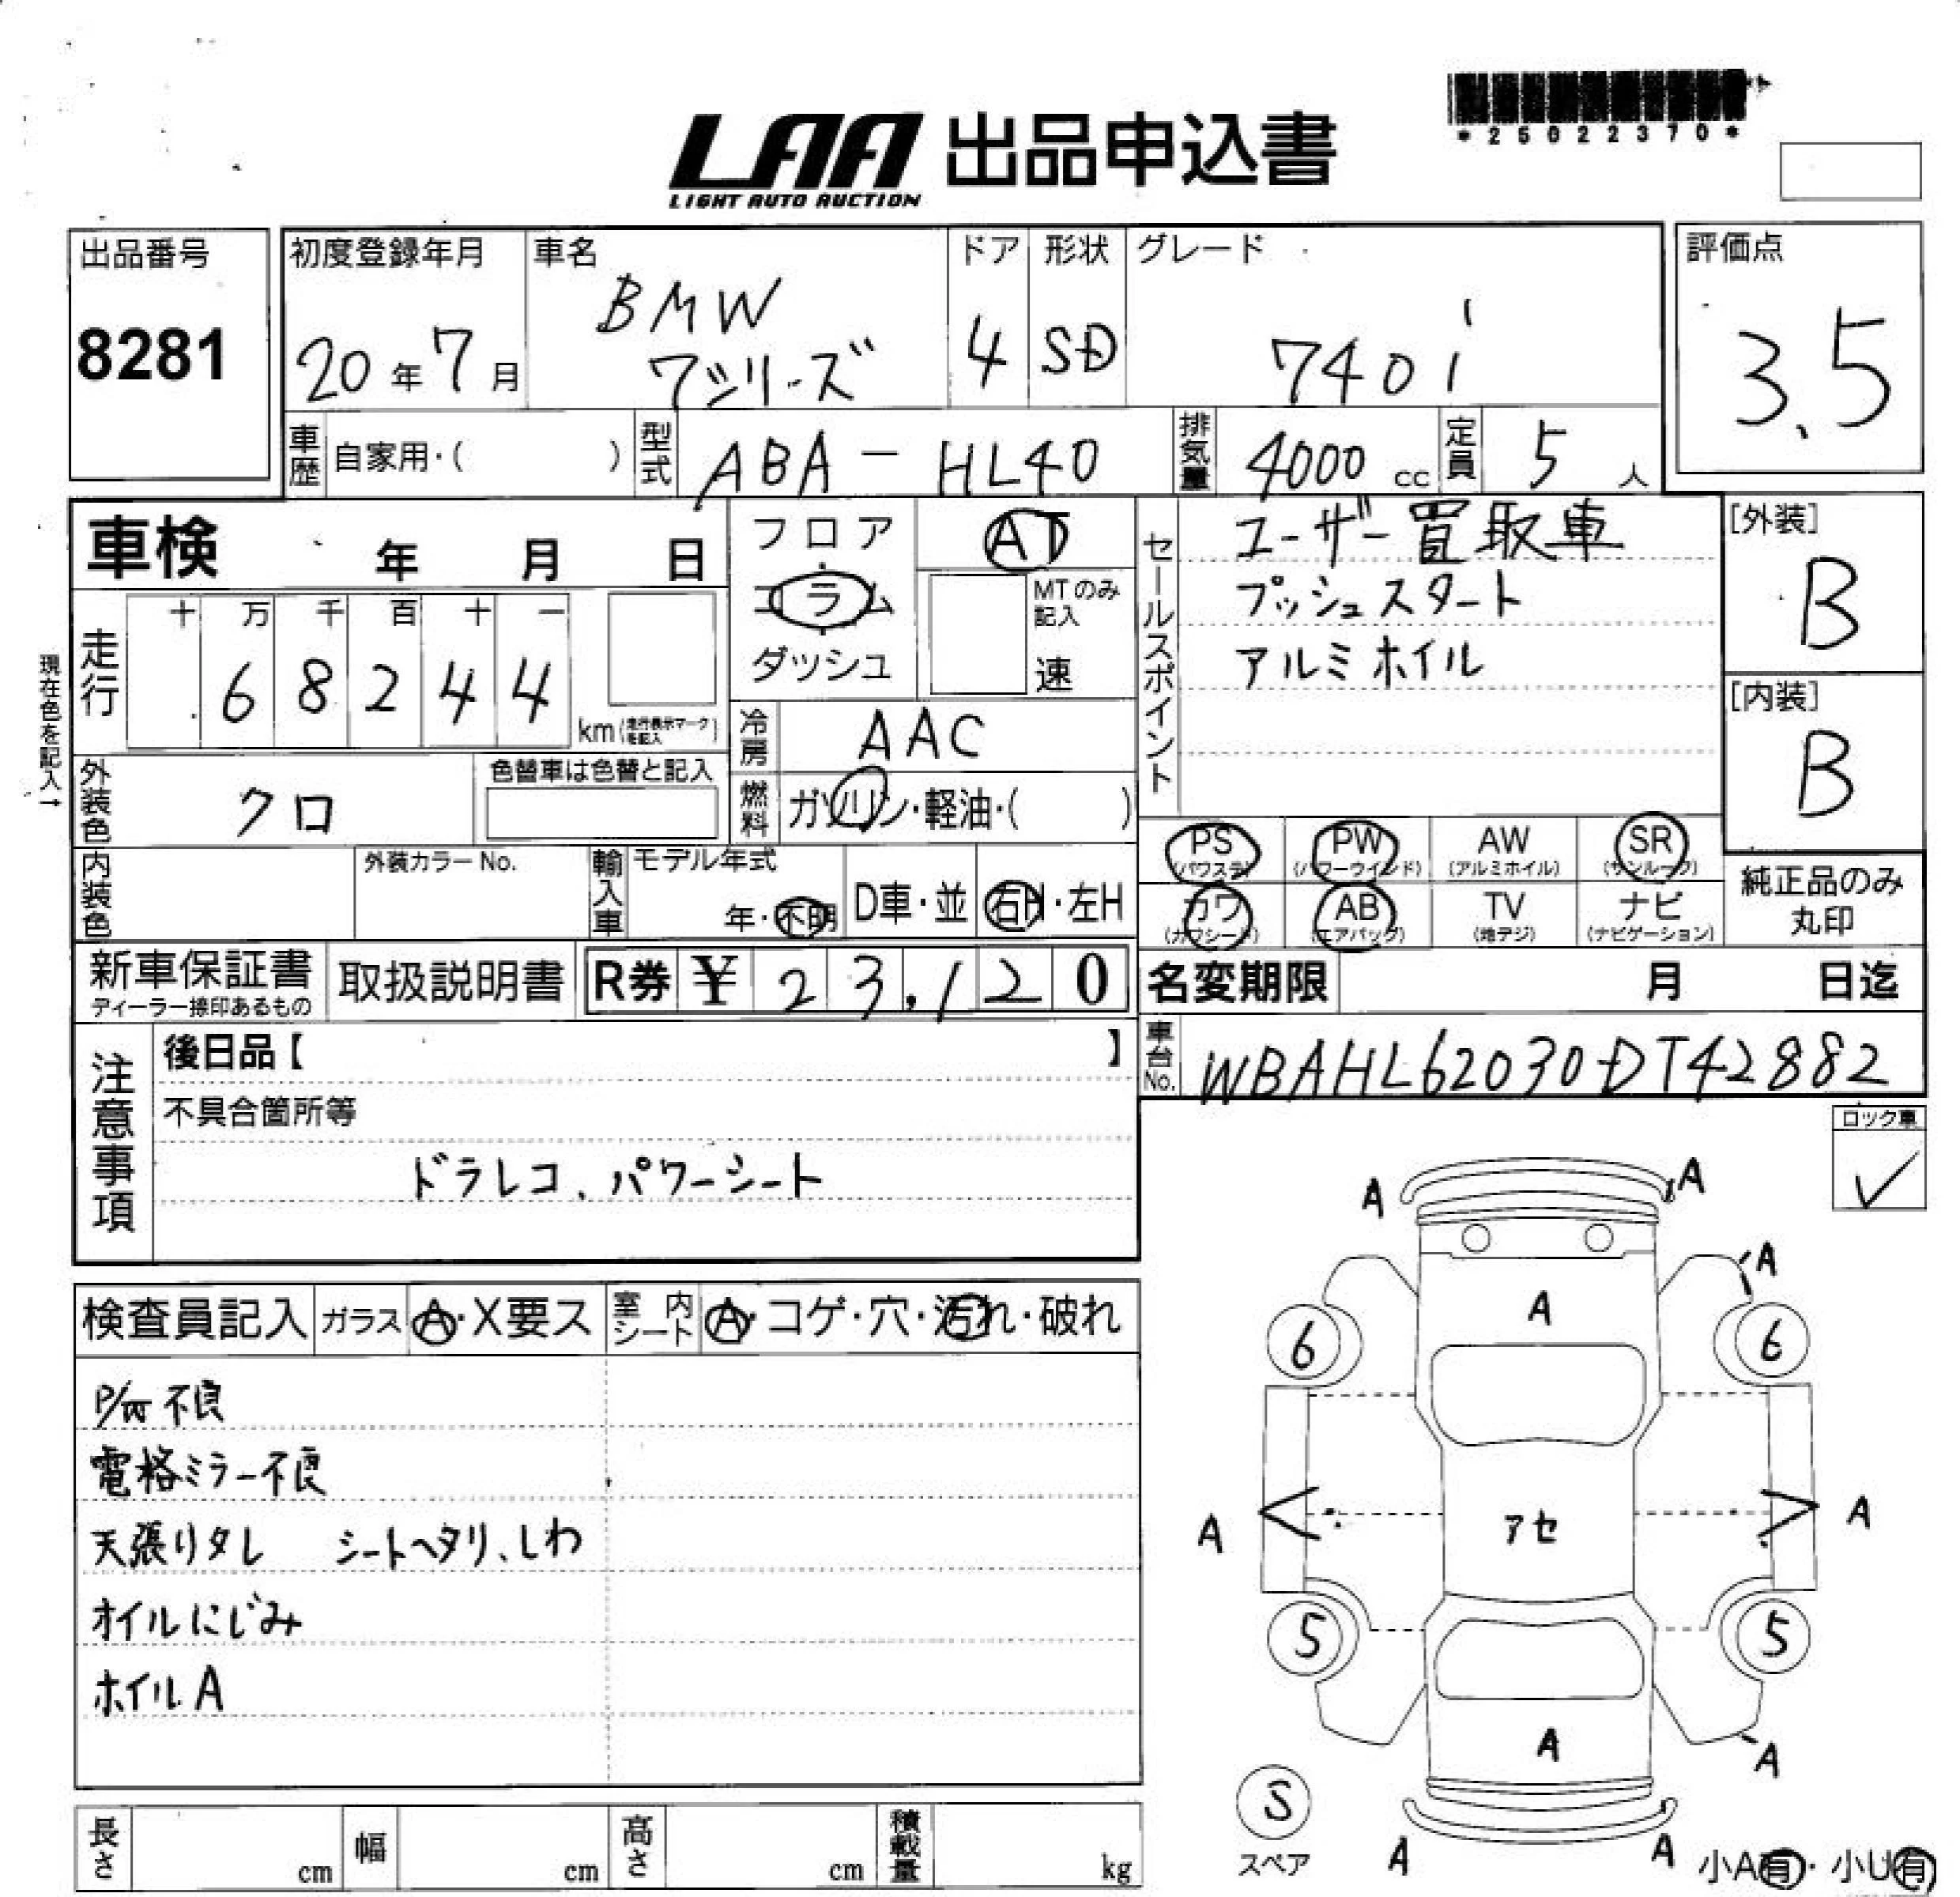 LAA 出品申込書
LIGHT AUTO AUCTION
*25022370*
出品番号
8281
初度登録年月
20年7月
車名
BMW
7シリーズ
ドア
4
形状
SD
グレード
740i
評価点
3.5
車歴
自家用・( )
型式
ABA-HL40
排気量
4000 cc
定員
5 人
車検 年 月 日
現在色を記入→
走行
十 万 千 百 十 一
6 8 2 4 4
km(走行表示マークを記入)
フロア
コラム
ダッシュ
AT
MTのみ
記入
速
セールスポイント
ユーザー買取車
プッシュスタート
アルミホイル
[外装]
B
[内装]
B
冷房
AAC
燃料
ガソリン・軽油・( )
外装色
クロ
色替車は色替と記入
内装色
外装カラーNo.
輸入車
モデル年式
年・不明
D車・並
右H・左H
PS
(パワステ)
PW
(パワーウインド)
AW
(アルミホイル)
SR
(サンルーフ)
カワ
(カワシート)
AB
(エアバッグ)
TV
(地デジ)
ナビ
(ナビゲーション)
純正品のみ
丸印
新車保証書
ディーラー捺印あるもの
取扱説明書
R券 ¥ 23,120
名変期限 月 日迄
車台No.
WBAHL62030DT42882
注意事項
後日品【 】
不具合箇所等
ドラレコ、パワーシート
ロック車
✓
検査員記入
ガラス
A・X要ス
室内シート
A・コゲ・穴・汚れ・破れ
P/W不良
電格ミラー不良
天張りタレ シートヘタリ、しわ
オイルにじみ
ホイルA
A A
A
A
6 6
A アセ A
5 5
A
A
S
スペア
A A
小A有・小U有
長さ cm
幅 cm
高さ cm
積載量 kg